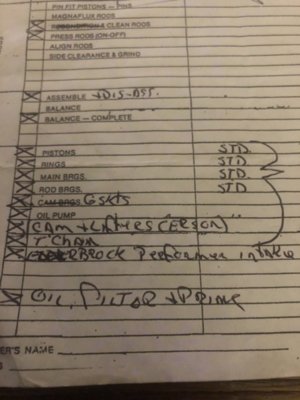 PIN FIT PISTONS — PINS
MAGNAFLUX RODS
RECONDITION & CLEAN RODS
PRESS RODS (ON-OFF)
ALIGN RODS
SIDE CLEARANCE & GRIND
ASSEMBLE + DIS-AST.
BALANCE
BALANCE — COMPLETE
PISTONS STD.
RINGS STD
MAIN BRGS. STD.
ROD BRGS. STD
CAM BRGS GSKTS
OIL PUMP
(CAM + LIFTERS (CERSON)
T CHAIN
Performer intake
OIL, FILTOR + PRIME
ER'S NAME